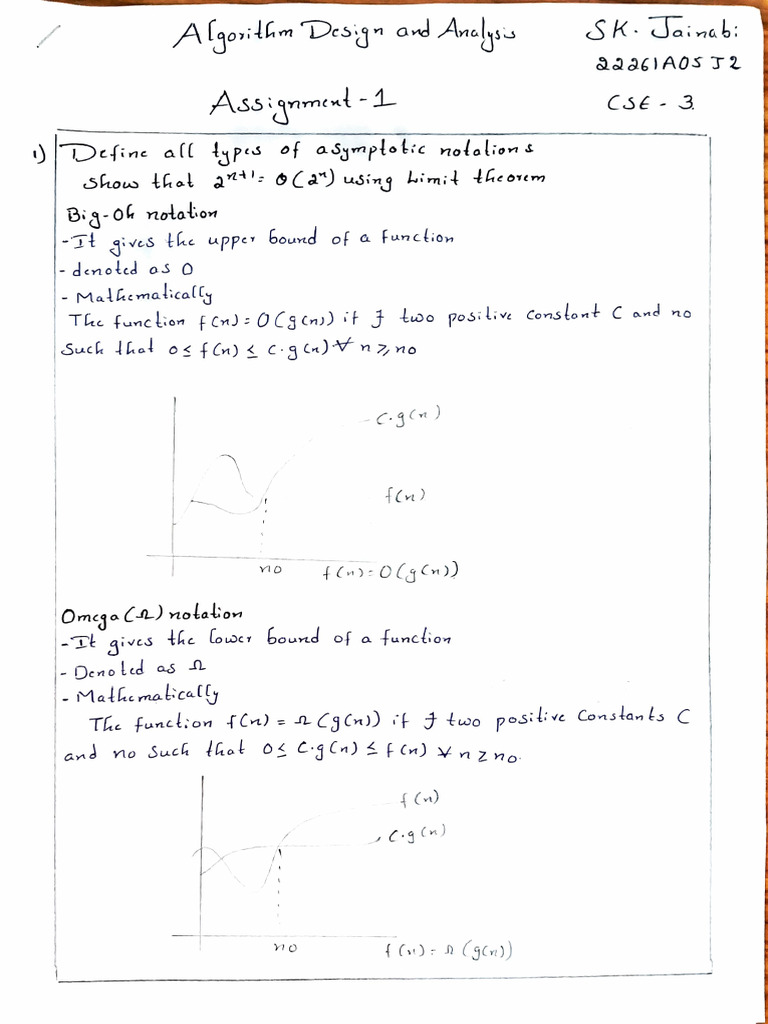 Algorithm Design and Analysis
SK. Jainabi
22261A05J2
Assignment-1
CSE - 3
1) Define all types of asymptotic notations
show that 2ⁿ⁺¹ = O(2ⁿ) using Limit theorem
Big-Oh notation
- It gives the upper bound of a function
- denoted as O
- Mathematically
The function f(n) = O(g(n)) if ∃ two positive constant C and no
Such that 0 ≤ f(n) ≤ c.g(n) ∀ n ≥ no
c.g(n)
f(n)
no
f(n) = O(g(n))
Omega(Ω) notation
- It gives the lower bound of a function
- Denoted as Ω
- Mathematically
The function f(n) = Ω(g(n)) if ∃ two positive constants C
and no such that 0 ≤ C.g(n) ≤ f(n) ∀ n ≥ no.
f(n)
c.g(n)
no
f(n) = Ω(g(n))